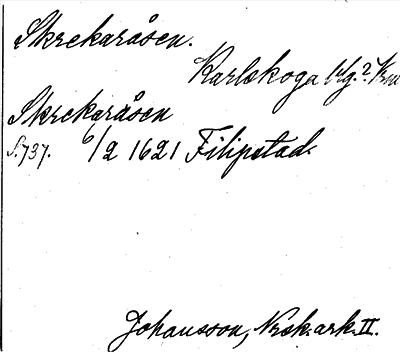 Skrekaråsen.
Karlskoga blg.?
Skrekaråsen
S.737. 6/2 1621 Filipstad.
Johansson, Nrsk.ark.II.